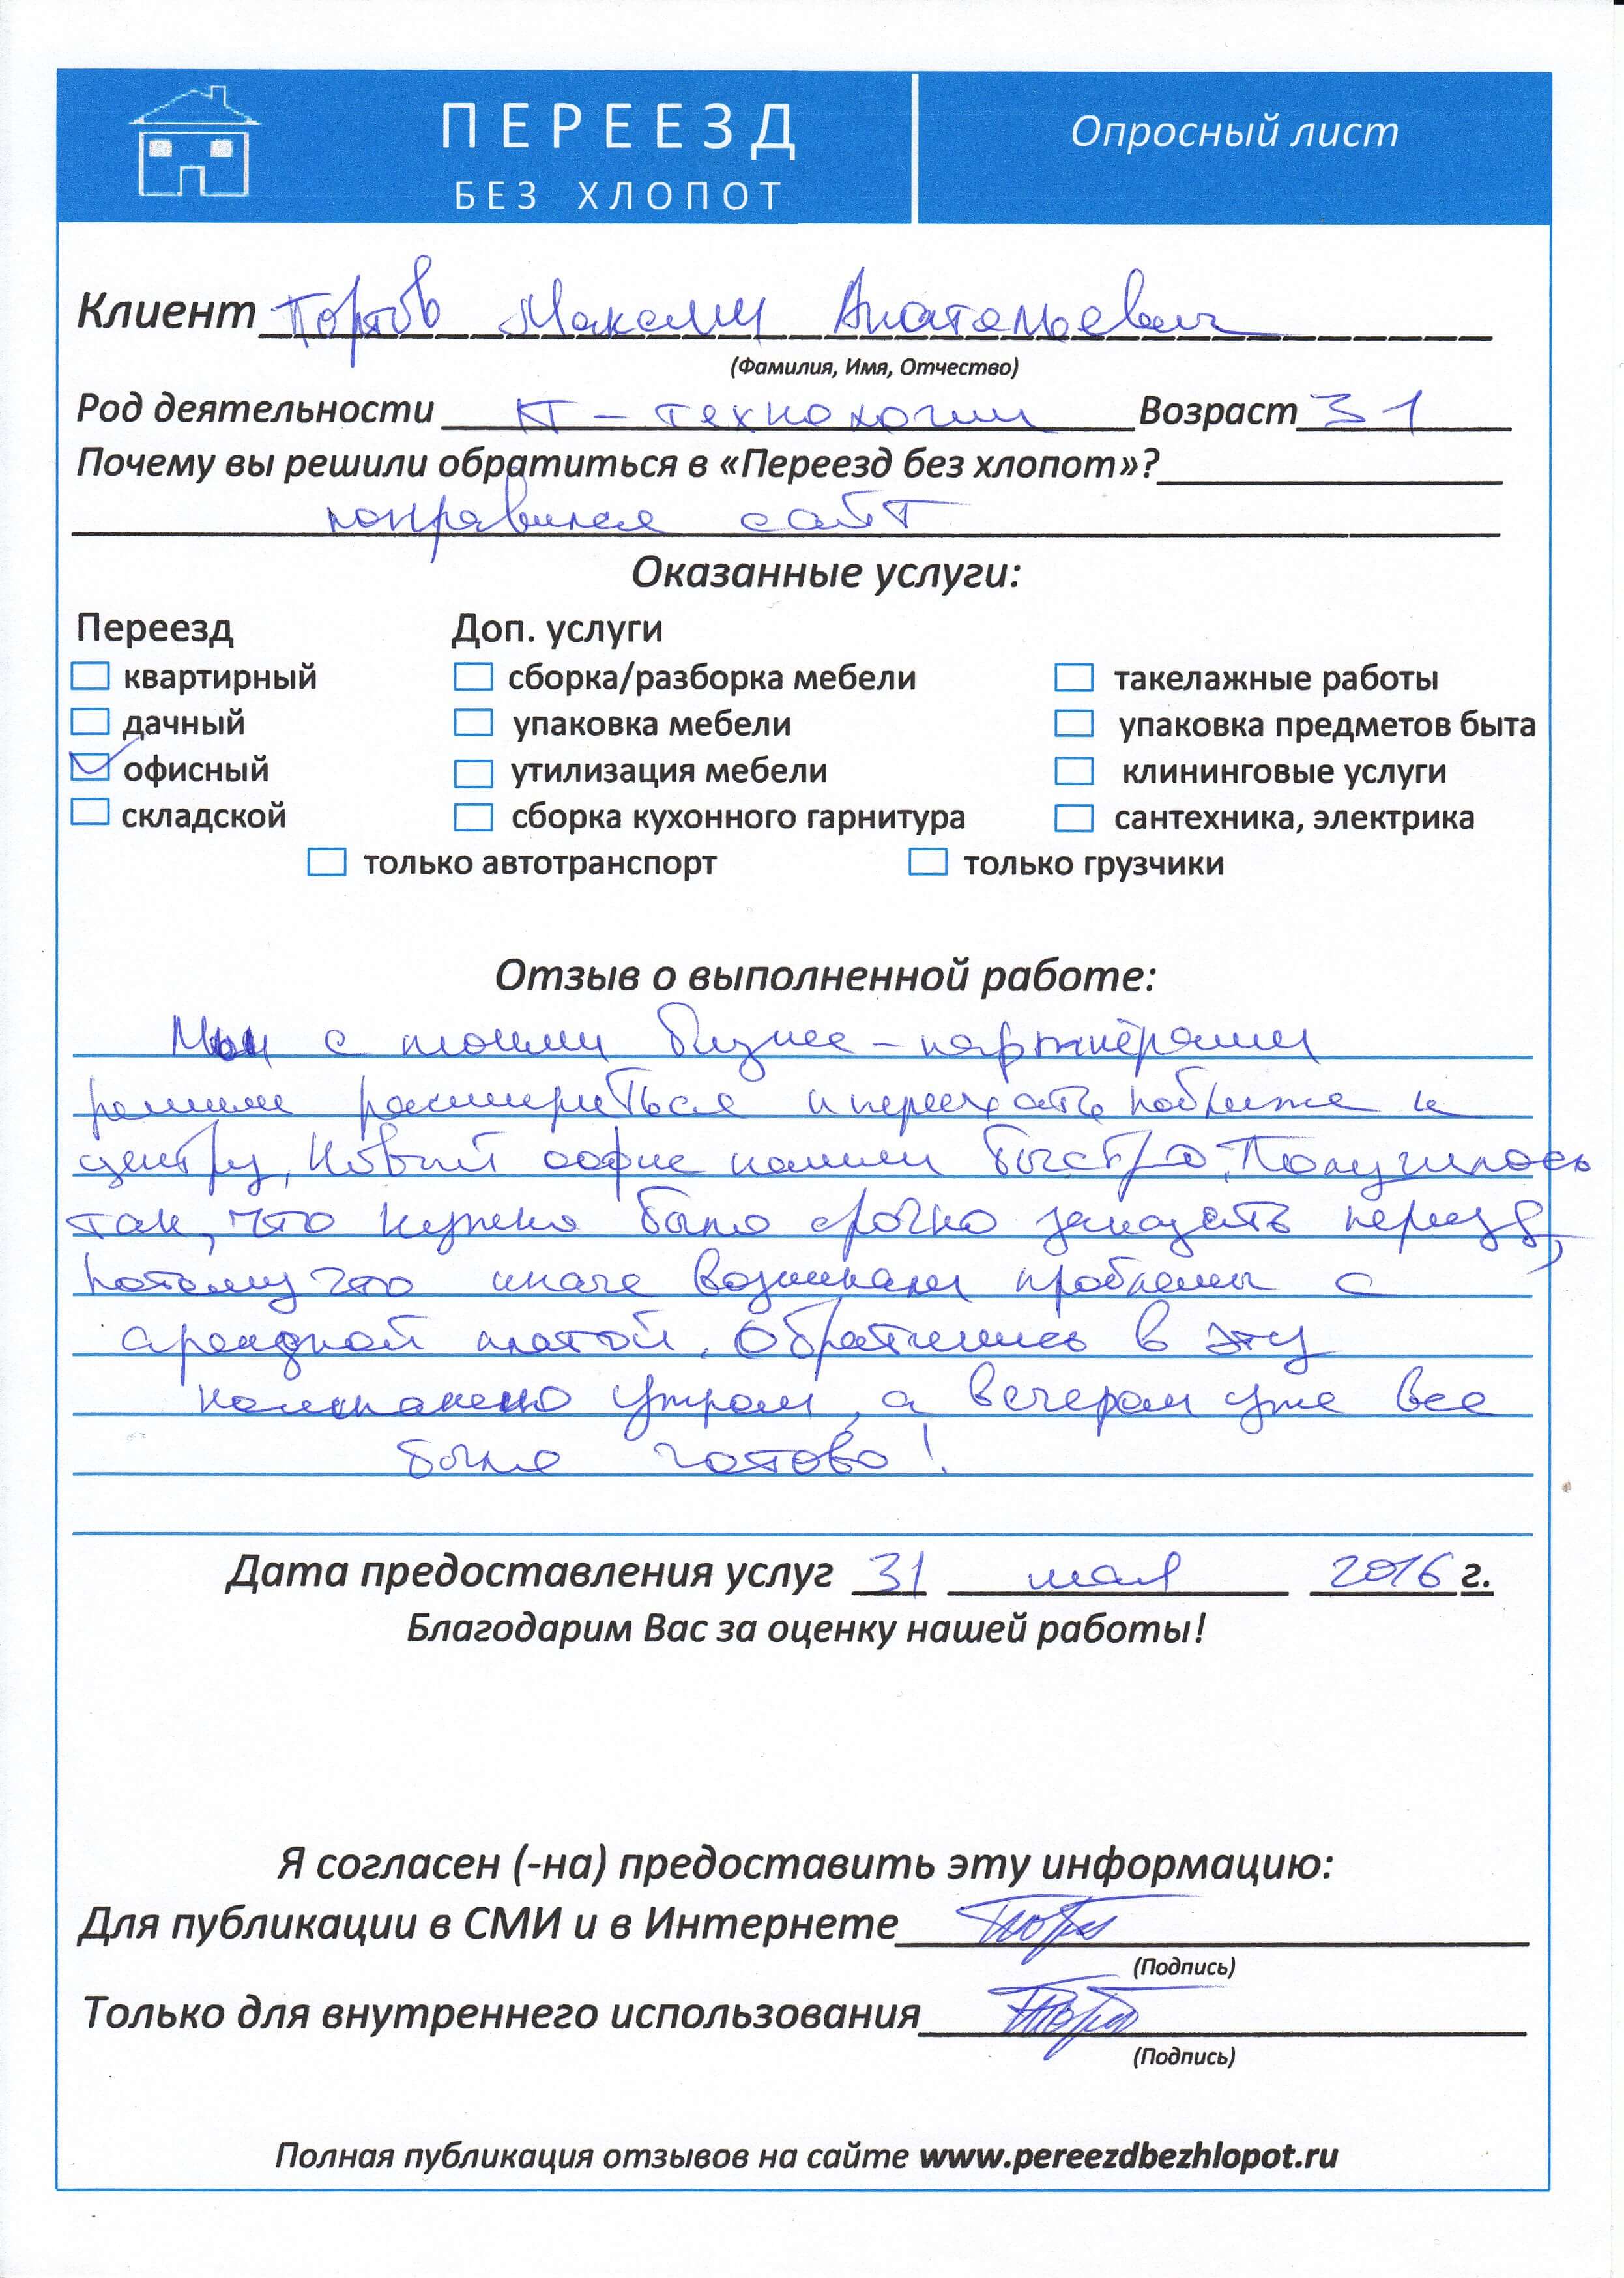 ПЕРЕЕЗД
БЕЗ ХЛОПОТ
Опросный лист
Клиент Портов Максим Анатольевич
(Фамилия, Имя, Отчество)
Род деятельности IT - технологии Возраст 31
Почему вы решили обратиться в «Переезд без хлопот»?
понравился сайт
Оказанные услуги:
Переезд Доп. услуги
квартирный сборка/разборка мебели такелажные работы
дачный упаковка мебели упаковка предметов быта
офисный утилизация мебели клининговые услуги
складской сборка кухонного гарнитура сантехника, электрика
только автотранспорт только грузчики
Отзыв о выполненной работе:
Мы с моими бизнес-партнёрами
решили расшириться и переехать поближе к
центру. Новый офис нашли быстро. Получилось
так, что нужно было срочно заказать переезд,
потому что иначе возникали проблемы с
арендной платой. Обратились в эту
компанию утром, а вечером уже все
было готово!
Дата предоставления услуг 31 мая 2016 г.
Благодарим Вас за оценку нашей работы!
Я согласен (-на) предоставить эту информацию:
Для публикации в СМИ и в Интернете
(Подпись)
Только для внутреннего использования
(Подпись)
Полная публикация отзывов на сайте www.pereezdbezhlopot.ru